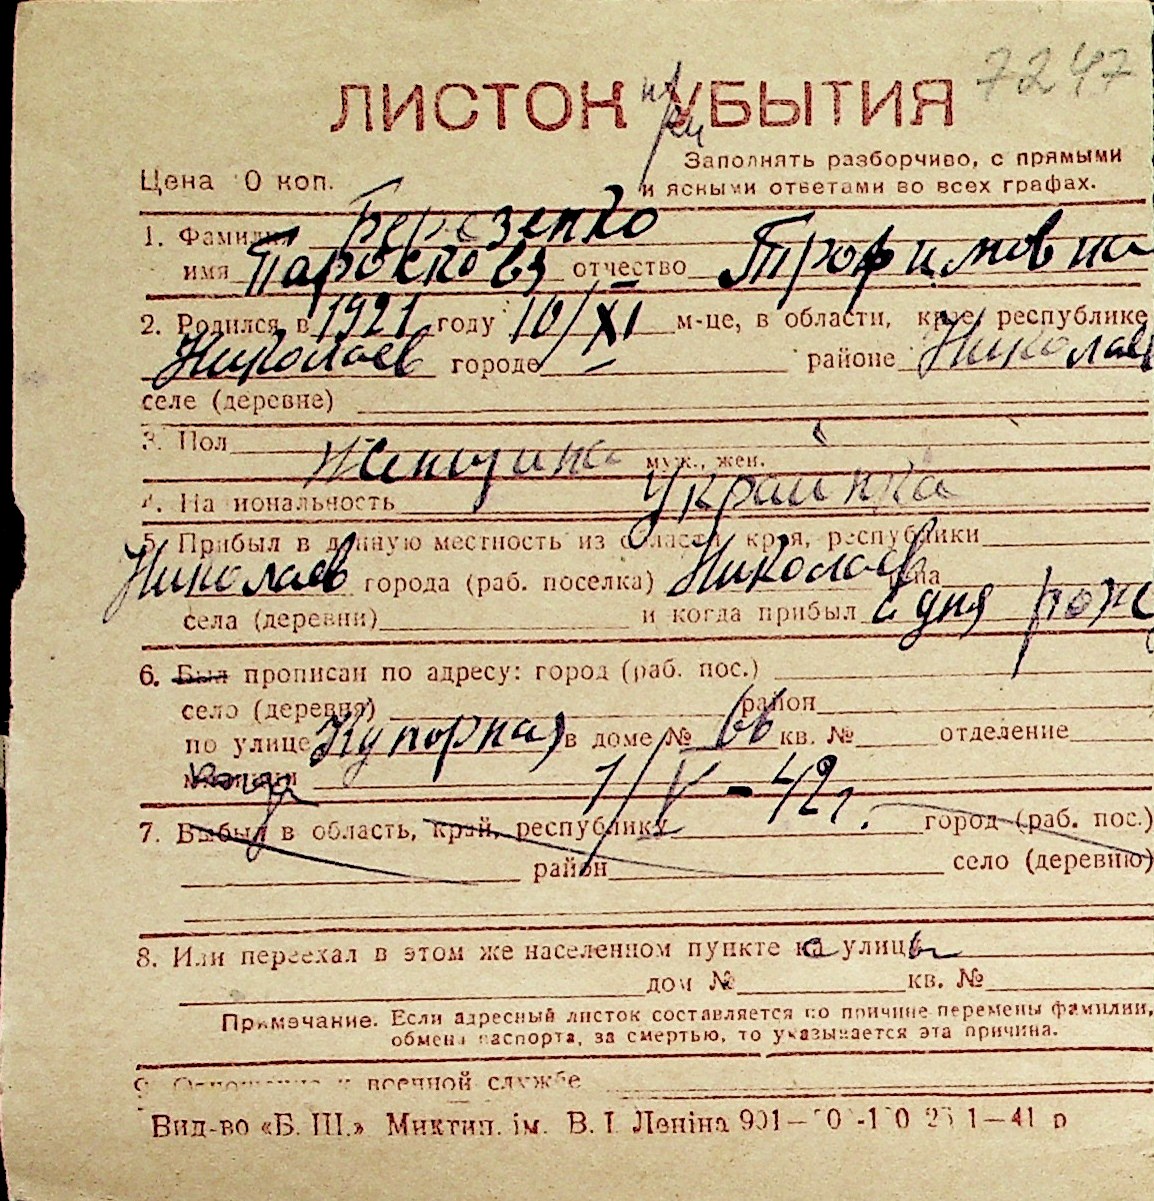 7247
ЛИСТОН УБЫТИЯ
при
Заполнять разборчиво, с прямыми
Цена 0 коп. и ясными ответами во всех графах.
1. Фамилия Березенко
имя Парасковя отчество Трофимовна
2. Родился в 1921 году 10/XI м-це, в области, крае, республике
Николаев городе — районе Николаев
селе (деревне)
3. Пол Женщина муж., жен.
4. Национальность Украинка
5. Прибыл в данную местность из области, края, республики
Николаев города (раб. поселка) Николаев
села (деревни) и когда прибыл с дня рож
6. Был прописан по адресу: город (раб. пос.)
село (деревня) район
по улице Купорная в доме № 66 кв. № отделение
милиции 1/V-42г.
7. Выбыл в область, край, республику город (раб. пос.)
район село (деревню)
8. Или переехал в этом же населенном пункте с улицы
дом № кв. №
Примечание. Если адресный листок составляется по причине перемены фамилии,
обмена паспорта, за смертью, то указывается эта причина.
9. Отношение к военной службе
Вид-во «Б. Ш.» Миктип. ім. В. І. Леніна